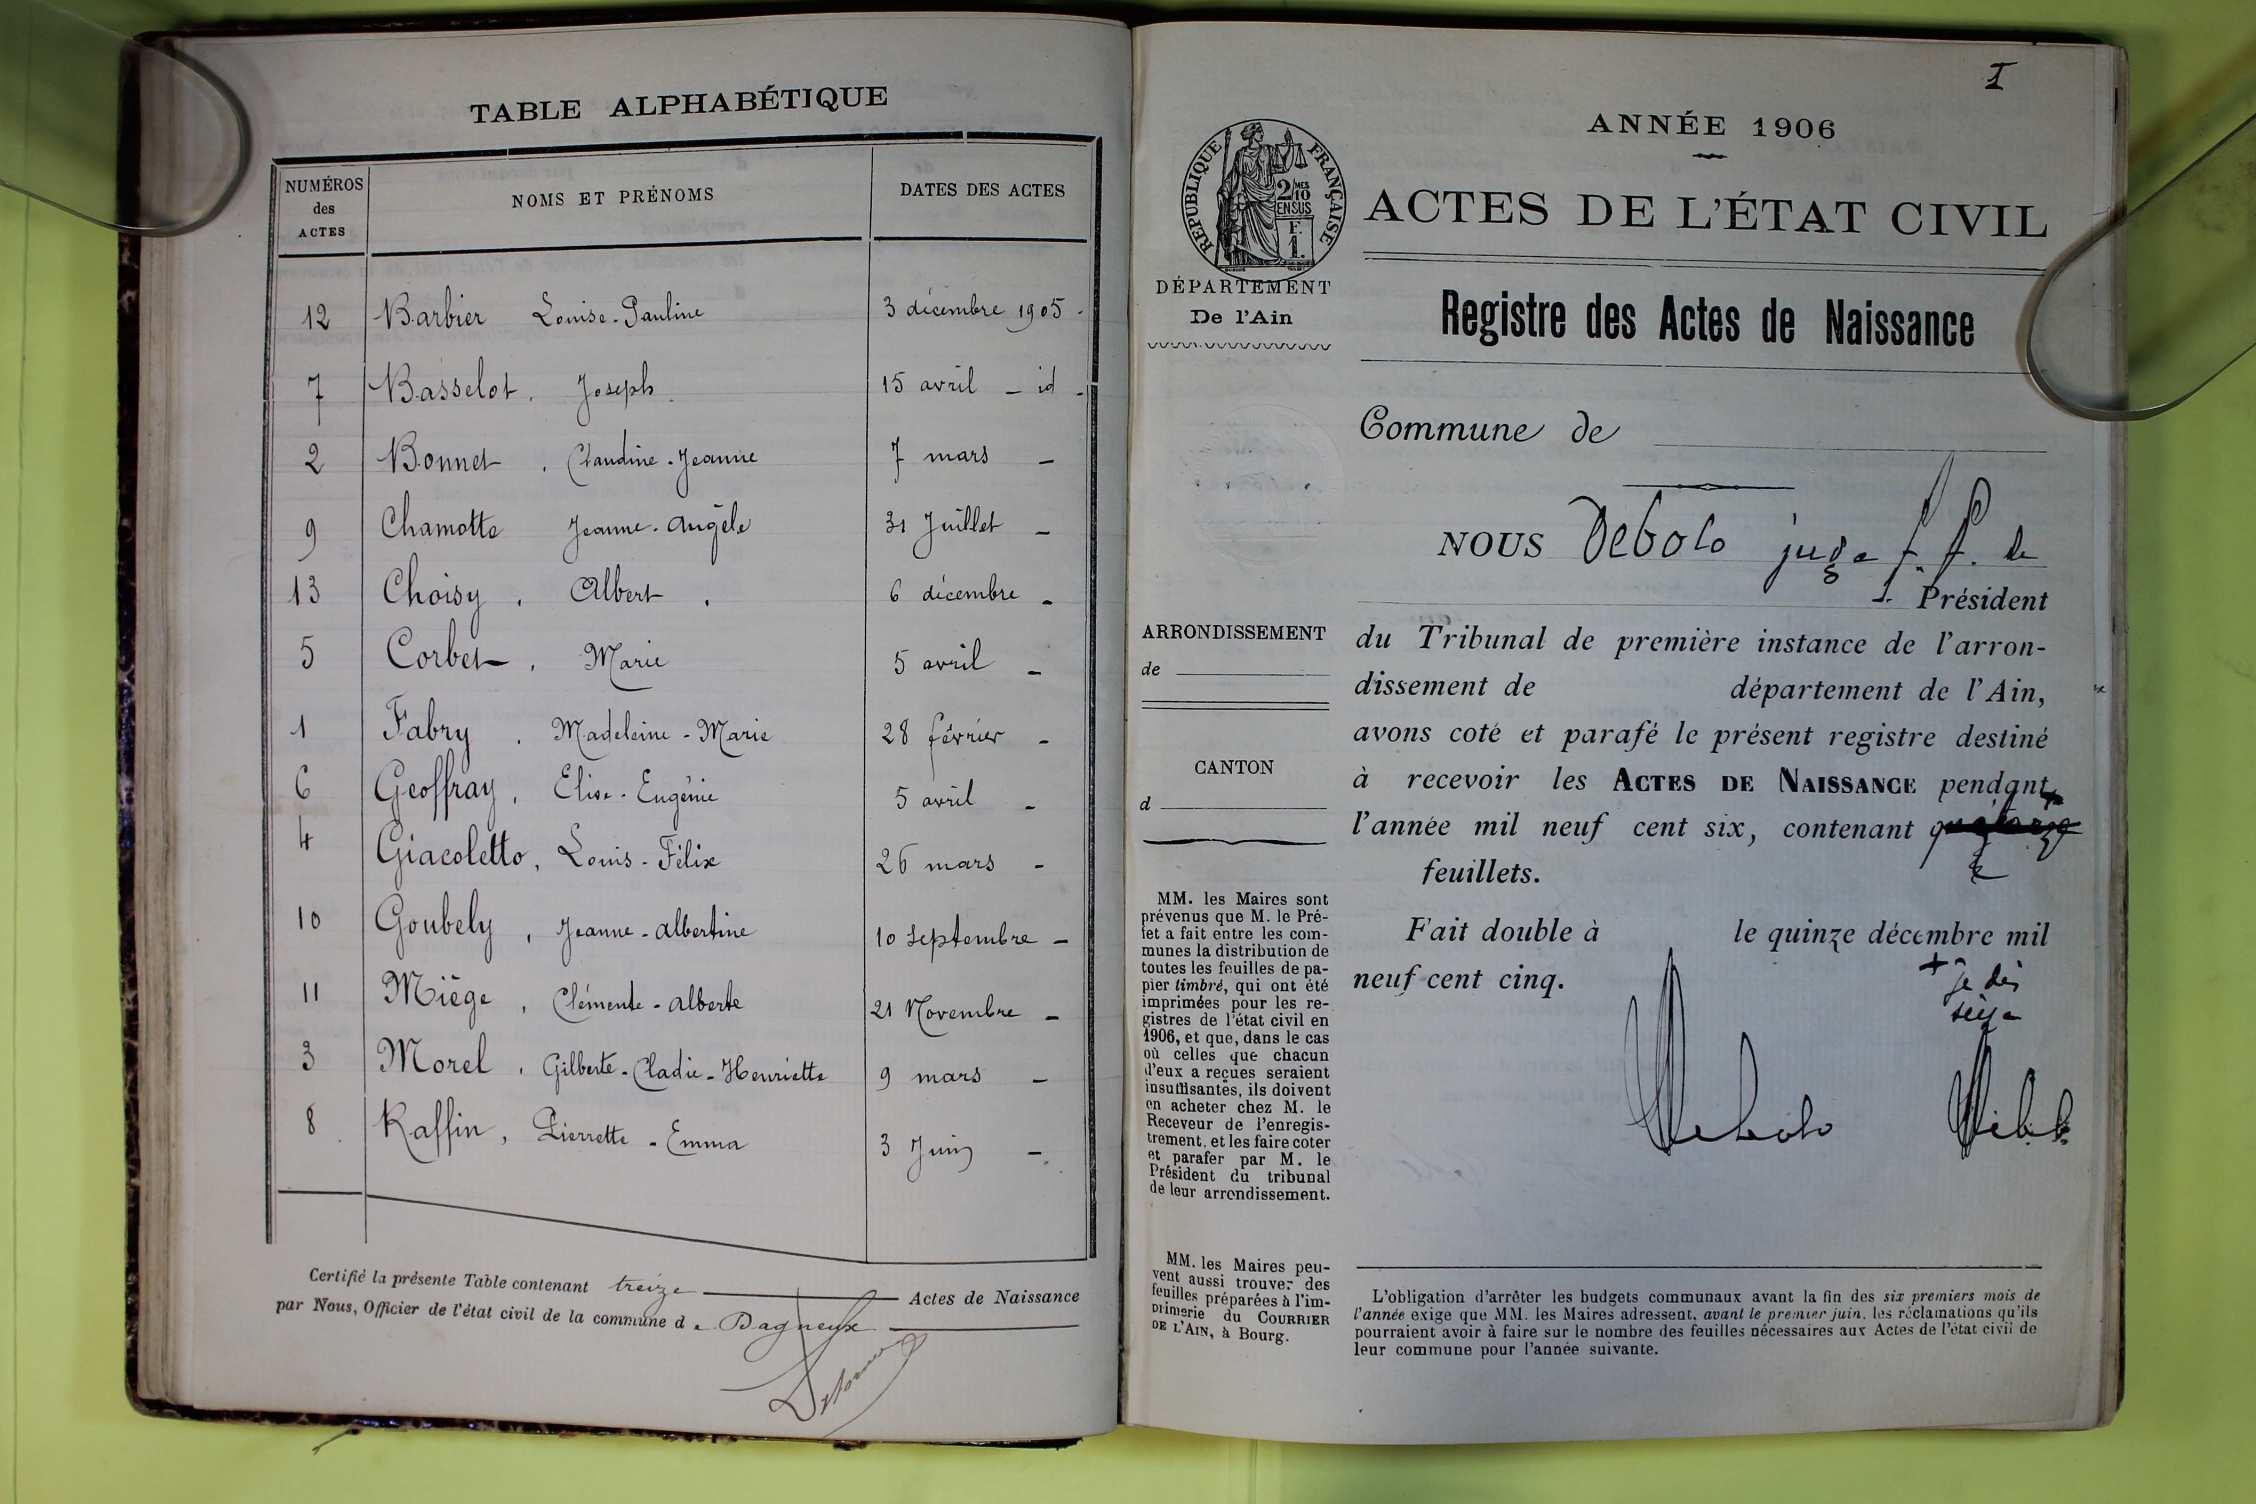 TABLE ALPHABÉTIQUE
NUMÉROS des ACTES NOMS ET PRÉNOMS DATES DES ACTES
12 Barbier Louise-Pauline 3 décembre 1905 -
7 Basselot, Joseph. 15 avril - id -
2 Bonnet, Claudine-Jeanne 7 mars -
9 Chamotte Jeanne-Angèle 31 Juillet -
13 Choisy, Albert. 6 décembre -
5 Corbet, Marie 5 avril -
1 Fabry, Madeleine-Marie 28 février -
6 Geoffray, Elise-Eugénie 5 avril -
4 Giacoletto, Louis-Félix 26 mars -
10 Goubely, Jeanne-Albertine 10 Septembre -
11 Miège, Clémente-Alberte 21 Novembre -
3 Morel, Gilberte-Cladie-Henriette 9 mars -
8 Raffin, Pierrette-Emma 3 Juin -
Certifié la présente Table contenant treize Actes de Naissance
par Nous, Officier de l'état civil de la commune de Dagneux
I
ANNÉE 1906
RÉPUBLIQUE FRANÇAISE
2/10 MES
EN SUS
F.
1.
ACTES DE L'ÉTAT CIVIL
DÉPARTEMENT
De l'Ain
Registre des Actes de Naissance
Commune de
NOUS Debolo juge f. f. de
Président
ARRONDISSEMENT
de
CANTON
d
du Tribunal de première instance de l'arron-
dissement de département de l'Ain,
avons coté et parafé le présent registre destiné
à recevoir les ACTES DE NAISSANCE pendant
l'année mil neuf cent six, contenant quatorze
feuillets.
Fait double à le quinze décembre mil
neuf cent cinq.
+ je dis
seize
Debolo
MM. les Maires sont
prévenus que M. le Pré-
fet a fait entre les com-
munes la distribution de
toutes les feuilles de pa-
pier timbré, qui ont été
imprimées pour les re-
gistres de l'état civil en
1906, et que, dans le cas
où celles que chacun
d'eux a reçues seraient
insuffisantes, ils doivent
en acheter chez M. le
Receveur de l'enregis-
trement, et les faire coter
et parafer par M. le
Président du tribunal
de leur arrondissement.
MM. les Maires peu-
vent aussi trouver des
feuilles préparées à l'im-
primerie du COURRIER
DE L'AIN, à Bourg.
L'obligation d'arrêter les budgets communaux avant la fin des six premiers mois de
l'année exige que MM. les Maires adressent, avant le premier juin, les réclamations qu'ils
pourraient avoir à faire sur le nombre des feuilles nécessaires aux Actes de l'état civil de
leur commune pour l'année suivante.